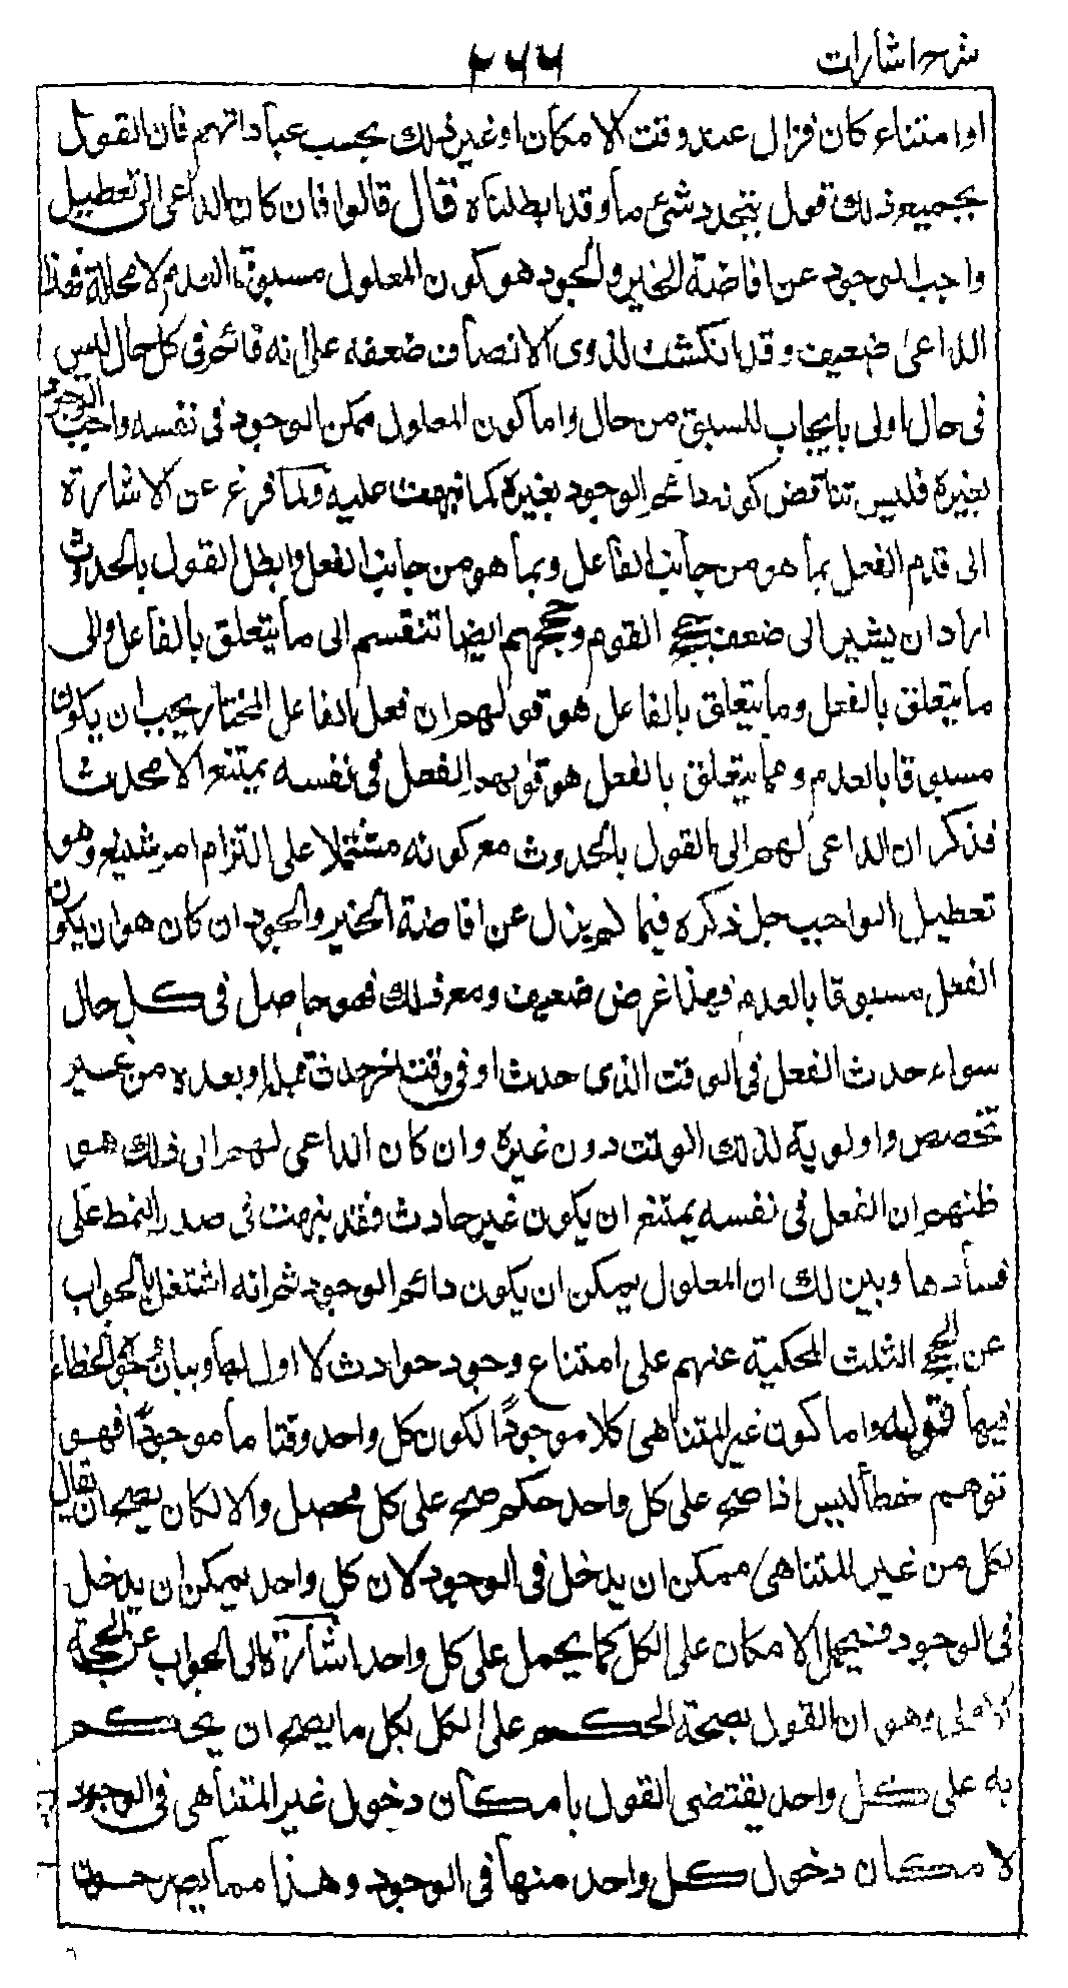 شرح اشارات
٢٦٦
او امتناع كان فزال عند وقت الامكان او غير ذلك بحسب عباداتهم فان القول
بجميع ذلك قول بتجدد شئ ما وقد ابطلناه قال قالوا فان كان الداعى الى تعطيل
واجب الوجود عن افاضة الخير والجود هو كون المعلول مسبوق العدم لا محالة فهذا
الداعى ضعيف وقد انكشف لذوى الانصاف ضعفه على انه قائم فى كل حال ليس
فى حال اولى بايجاب السبق من حال واما كون المعلول ممكن الوجود فى نفسه واجب الوجود
بغيره فليس تناقض كونه دائم الوجود بغيره كما نبهت عليه ولما فرغ عن الاشارة
الى قدم الفعل بما هو من جانب الفاعل وبما هو من جانب الفعل وابطل القول بالحدوث
اراد ان يشير الى ضعف حجج القوم وحججهم ايضا تنقسم الى ما يتعلق بالفاعل والى
ما يتعلق بالفعل وما يتعلق بالفاعل هو قولهم ان فعل الفاعل المختار يجب ان يكون
مسبوقا بالعدم ومما يتعلق بالفعل هو قولهم الفعل فى نفسه يمتنع الا محدثا
فذكر ان الداعى لهم الى القول بالحدوث مع كونه مشتملا على التزام امر شنيع وهو
تعطيل الواجب جل ذكره فيما لم يزل عن افاضة الخير والجود ان كان هو ان يكون
الفعل مسبوقا بالعدم فهذا غرض ضعيف ومع ذلك فهو حاصل فى كل حال
سواء حدث الفعل فى الوقت الذى حدث او فى وقت اخر حدث قبله او بعده من غير
تخصص واولوية لذلك الوقت دون غيره وان كان الداعى لهم الى ذلك هو
ظنهم ان الفعل فى نفسه يمتنع ان يكون غير حادث فقد نبهت فى صدر النمط على
فسادها وبين لك ان المعلول يمكن ان يكون دائم الوجود ثم انه اشتغل بالجواب
عن الحجج الثلث المحكية عنهم على امتناع وجود حوادث لا اول لها وبيان وجوه الخطاء
فيها فقوله واما كون غير المتناهى كلا موجودًا لكون كل واحد وقتا ما موجودًا فهو
توهم خطأ ليس اذا صح على كل واحد حكم صح على كل محصل والا لكان يصح ان يقال
لكل من غير المتناهى ممكن ان يدخل فى الوجود لان كل واحد يمكن ان يدخل
فى الوجود فيحمل الامكان على الكل كما يحمل على كل واحد اشارة الى الجواب عن الحجة
الاولى وهو ان القول بصحة الحكم على الكل بكل ما يصح ان يحكم
به على كل واحد يقتضى القول بامكان دخول غير المتناهى فى الوجود
لامكان دخول كل واحد منها فى الوجود وهذا مما يصرحون